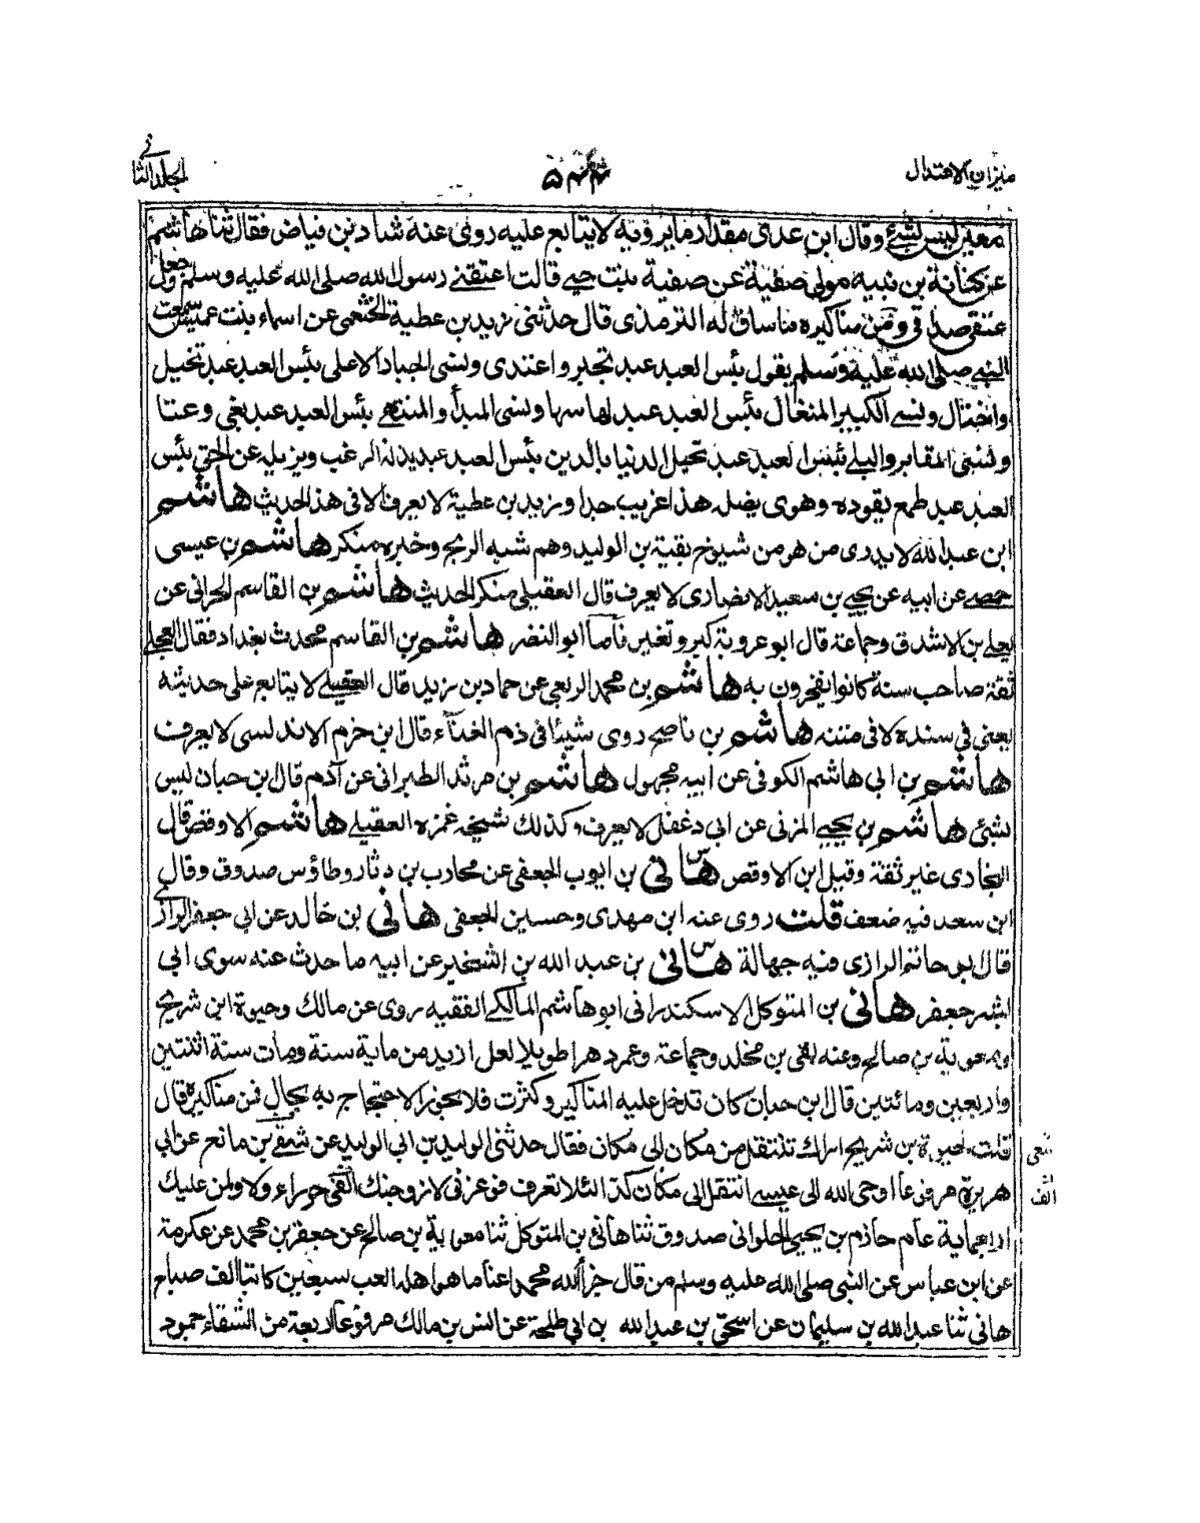 ميزان الاعتدال
المجلد الثانى
معين ليس بشئ وقال ابن عدى مقدار ما يرويه لا يتابع عليه روى عنه شاد بن فياض فقال ثنا هاشم
عن كنانة بن نبيه مولى صفية عن صفية بنت حيى قالت اعتقنى رسول الله صلى الله عليه وسلم وجعل
عتقى صداقى ومن مناكيره ما ساق له الترمذى قال حدثنى زيد بن عطية الخثعمى عن اسماء بنت عميس سمعت
النبى صلى الله عليه وسلم يقول بئس العبد عبد تجبر واعتدى ونسى الجبار الاعلى بئس العبد عبد تخيل
واختال ونسى الكبير المتعال بئس العبد عبد لها سها ونسى المبدأ والمنتهى بئس العبد عبد بغى وعتا
ونسى المقابر والبلى بئس العبد عبد تحيل الدنيا بالدين بئس العبد عبد يذله الرغب ويزيله عن الحق بئس
العبد عبد طمع يقوده وهوى يضله هذا غريب جدا وزيد بن عطية لا يعرف الا فى هذا الحديث هاشم
ابن عبد الله لا يدرى من هو من شيوخ بقية بن الوليد وهم شبه الريح وخبره منكر هاشم بن عيسى
حمصى عن ابيه عن يحيى بن سعيد الانصارى لا يعرف قال العقيلى منكر الحديث هاشم بن القاسم الحرانى عن
يعلى بن الاشدق وجماعة قال ابو عروبة كبر وتغير فاما ابو النضر هاشم بن القاسم محدث بغداد فقال العجلى
ثقة صاحب سنة كانوا يفخرون به هاشم بن محمد الربعى عن حماد بن زيد قال العقيلى لا يتابع على حديثه
يعنى فى سنده لا فى متنه هاشم بن ناصح روى شيئا فى ذم الغناء قال ابن حزم الاندلسى لا يعرف
هاشم بن ابى هاشم الكوفى عن ابيه مجهول هاشم بن مرثد الطبرانى عن آدم قال ابن حبان ليس
بشئ هاشم بن يحيى المزنى عن ابى دغفل لا يعرف وكذلك شيخه غمزه العقيلى هاشم الاوقص قال
البخارى غير ثقة وقيل ابن الاوقص هانى بن ايوب الجعفى عن محارب بن دثار وطاؤس صدوق وقال
ابن سعد فيه ضعف قلت روى عنه ابن مهدى وحسين الجعفى هانى بن خالد عن ابى جعفر الرازى
قال ابو حاتم الرازى فيه جهالة هانى بن عبد الله بن الشخير عن ابيه ما حدث عنه سوى ابى
بشر جعفر هانى بن المتوكل الاسكندرانى ابو هاشم المالكى الفقيه روى عن مالك وحيوة ابن شريح
ومعوية بن صالح وعنه بقى بن مخلد وجماعة وعمر دهرا طويلا لعل ازيد من ماية سنة ومات سنة اثنتين
واربعين ومائتين قال ابن حبان كان تدخل عليه المناكير وكثرت فلا يجوز الاحتجاج به بحال فمن مناكيره قال
قلت لحيوة بن شريح اراك تنتقل من مكان الى مكان فقال حدثنى الوليد بن ابى الوليد عن شفى بن ماتع عن ابى
هريرة مرفوعا اوحى الله الى عيسى انتقل الى مكان كذا لئلا تعرف فوعزتى لازوجنك الفى حوراء ولاولمن عليك
اربعماية عام حازم بن يحيى الحلوانى صدوق ثنا هانى بن المتوكل ثنا معوية بن صالح عن جعفر بن محمد عن عكرمة
عن ابن عباس عن النبى صلى الله عليه وسلم من قال جزا الله محمدا عنا ما هو اهله اتعب سبعين كاتبا الف صباح
هانى ثنا عبد الله بن سليمان عن اسحق بن عبد الله بن ابى طلحة عن انس بن مالك مرفوعا اربعة من الشقاء جمود
الف